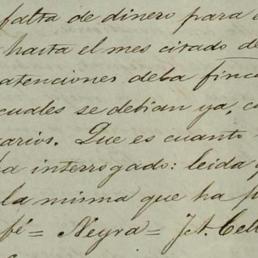 falta de dinero para
hasta el mes citado de
atenciones deba finca
cuales se debian ya, co
arios. Que es cuanto
ha interrogado: leida y
la misma que ha p
fé = Neyra = J. A. Cell